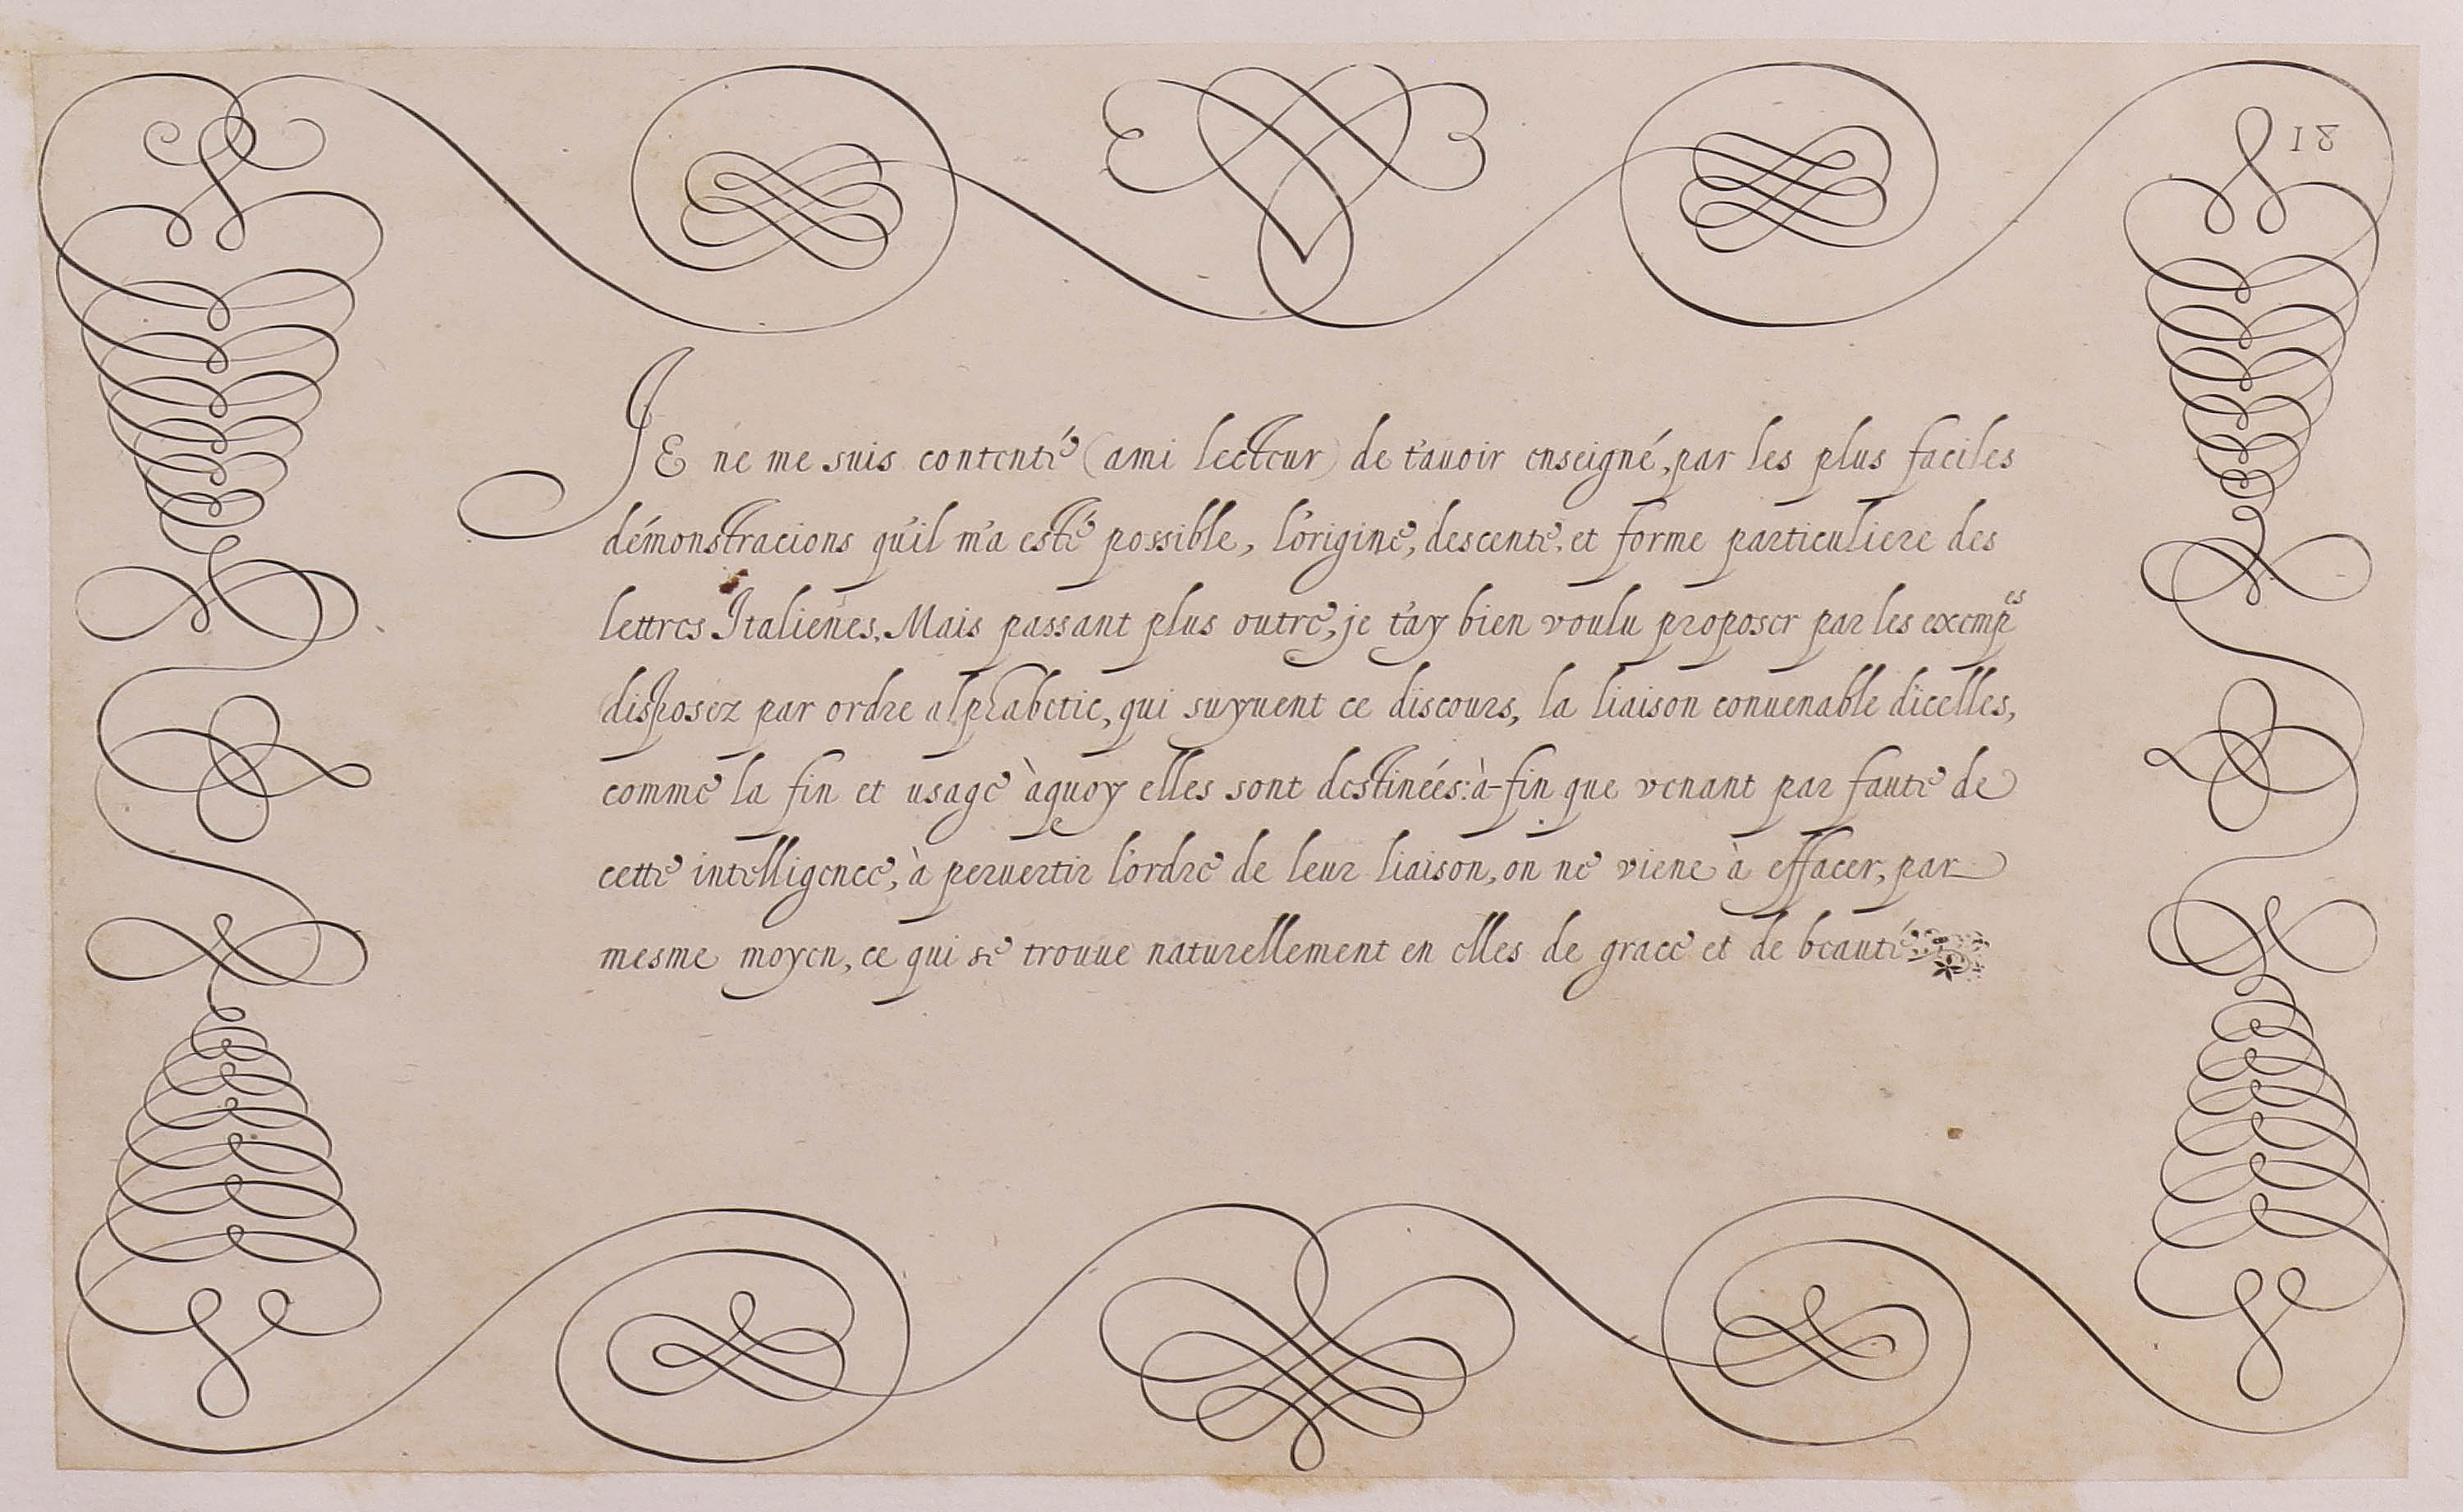 18
JE ne me suis contenté (ami lecteur) de t'auoir enseigné, par les plus faciles
démonstracions qu'il m'a esté possible, l'origine, descente, et forme particuliere des
lettres Italienes, Mais passant plus outre, je t'ay bien voulu proposer par les exempes
disposez par ordre alphabetic, qui suyuent ce discours, la liaison conuenable d'icelles,
comme la fin et usage àquoy elles sont destinées: à-fin que venant par faute de
cette intelligence, à peruertir l'ordre de leur liaison, on ne viene à effacer, par
mesme moyen, ce qui se trouue naturellement en elles de grace et de beauté